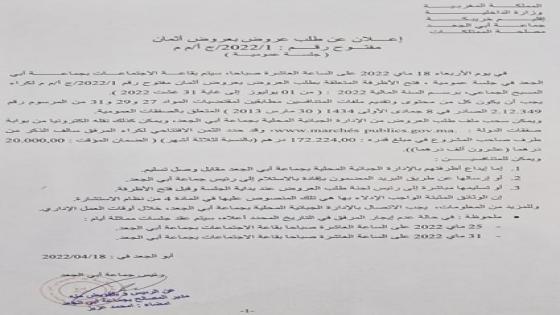 المملكة المغربية
وزارة الداخلية
إقليم خريبكة
جماعة أبي الجعد
مصلحة الممتلكات
إعلان عن طلب عروض بعروض أثمان
مفتوح رقم : 2022/1/ج أ/م م
( جلسة عمومية )
في يوم الأربعاء 18 ماي 2022 على الساعة العاشرة صباحا، سيتم بقاعة الاجتماعات بجماعة أبي
الجعد في جلسة عمومية ، فتح الأظرفة المتعلقة بطلب العروض بعروض أثمان مفتوح رقم 2022/1/ج أ/م م لكراء
المسبح الجماعي، برسم السنة المالية 2022 : ( من 01 يوليوز إلى غاية 31 غشت 2022).
يجب أن يكون كل من محتوى وتقديم ملفات المتنافسين مطابقين لمقتضيات المواد 27 و29 و31 من المرسوم رقم
2.12.349 الصادر في 8 جمادى الأولى 1434 ( 20 مارس 2013 ) المتعلق بالصفقات العمومية.
ويمكن سحب ملف طلب العروض من الإدارة الجبائية المحلية بجماعة أبي الجعد، ويمكن كذلك نقله الكترونيا من بوابة
صفقات الدولة .www.marchés publics.gov.ma، وقد حدد الثمن الافتتاحي لكراء المرفق سالف الذكر من
طرف صاحب المشروع في مبلغ قدره : 172.224,00 درهم (بالنسبة لثلاثة أشهر) ( الضمان المؤقت : 20.000,00
درهم (عشرون ألف درهما)).
ويمكن للمتنافسين :
1. إما إيداع أظرفتهم بالإدارة الجبائية المحلية بجماعة أبي الجعد مقابل وصل تسليم.
2. أو إرسالها عن طريق البريد المضمون بإفادة بالاستلام إلى رئيس جماعة أبي الجعد.
3. أو تسليمها مباشرة إلى رئيس لجنة طلب العروض عند بداية الجلسة وقبل فتح الأظرفة.
إن الوثائق المثبتة الواجب الإدلاء بها هي تلك المنصوص عليها في المادة 4 من نظام الاستشارة.
وللمزيد من المعلومات، يجب الاتصال بالإدارة الجبائية المحلية بجماعة أبي الجعد، خلال أوقات العمل الإداري.
• ملحوظة : في حالة عدم إيجار المرفق في التاريخ المحدد أعلاه، سيتم عقد جلسات مماثلة أيام :
- 25 ماي 2022 على الساعة العاشرة صباحا بقاعة الاجتماعات بجماعة أبي الجعد.
- 31 ماي 2022 على الساعة العاشرة صباحا بقاعة الاجتماعات بجماعة أبي الجعد.
أبو الجعد في : 2022/04/18
رئيس جماعة أبي الجعد
عن الرئيس وبتفويض منه
مدير المصالح بجماعة أبي الجعد
إمضاء : محمد عزيز
-1-